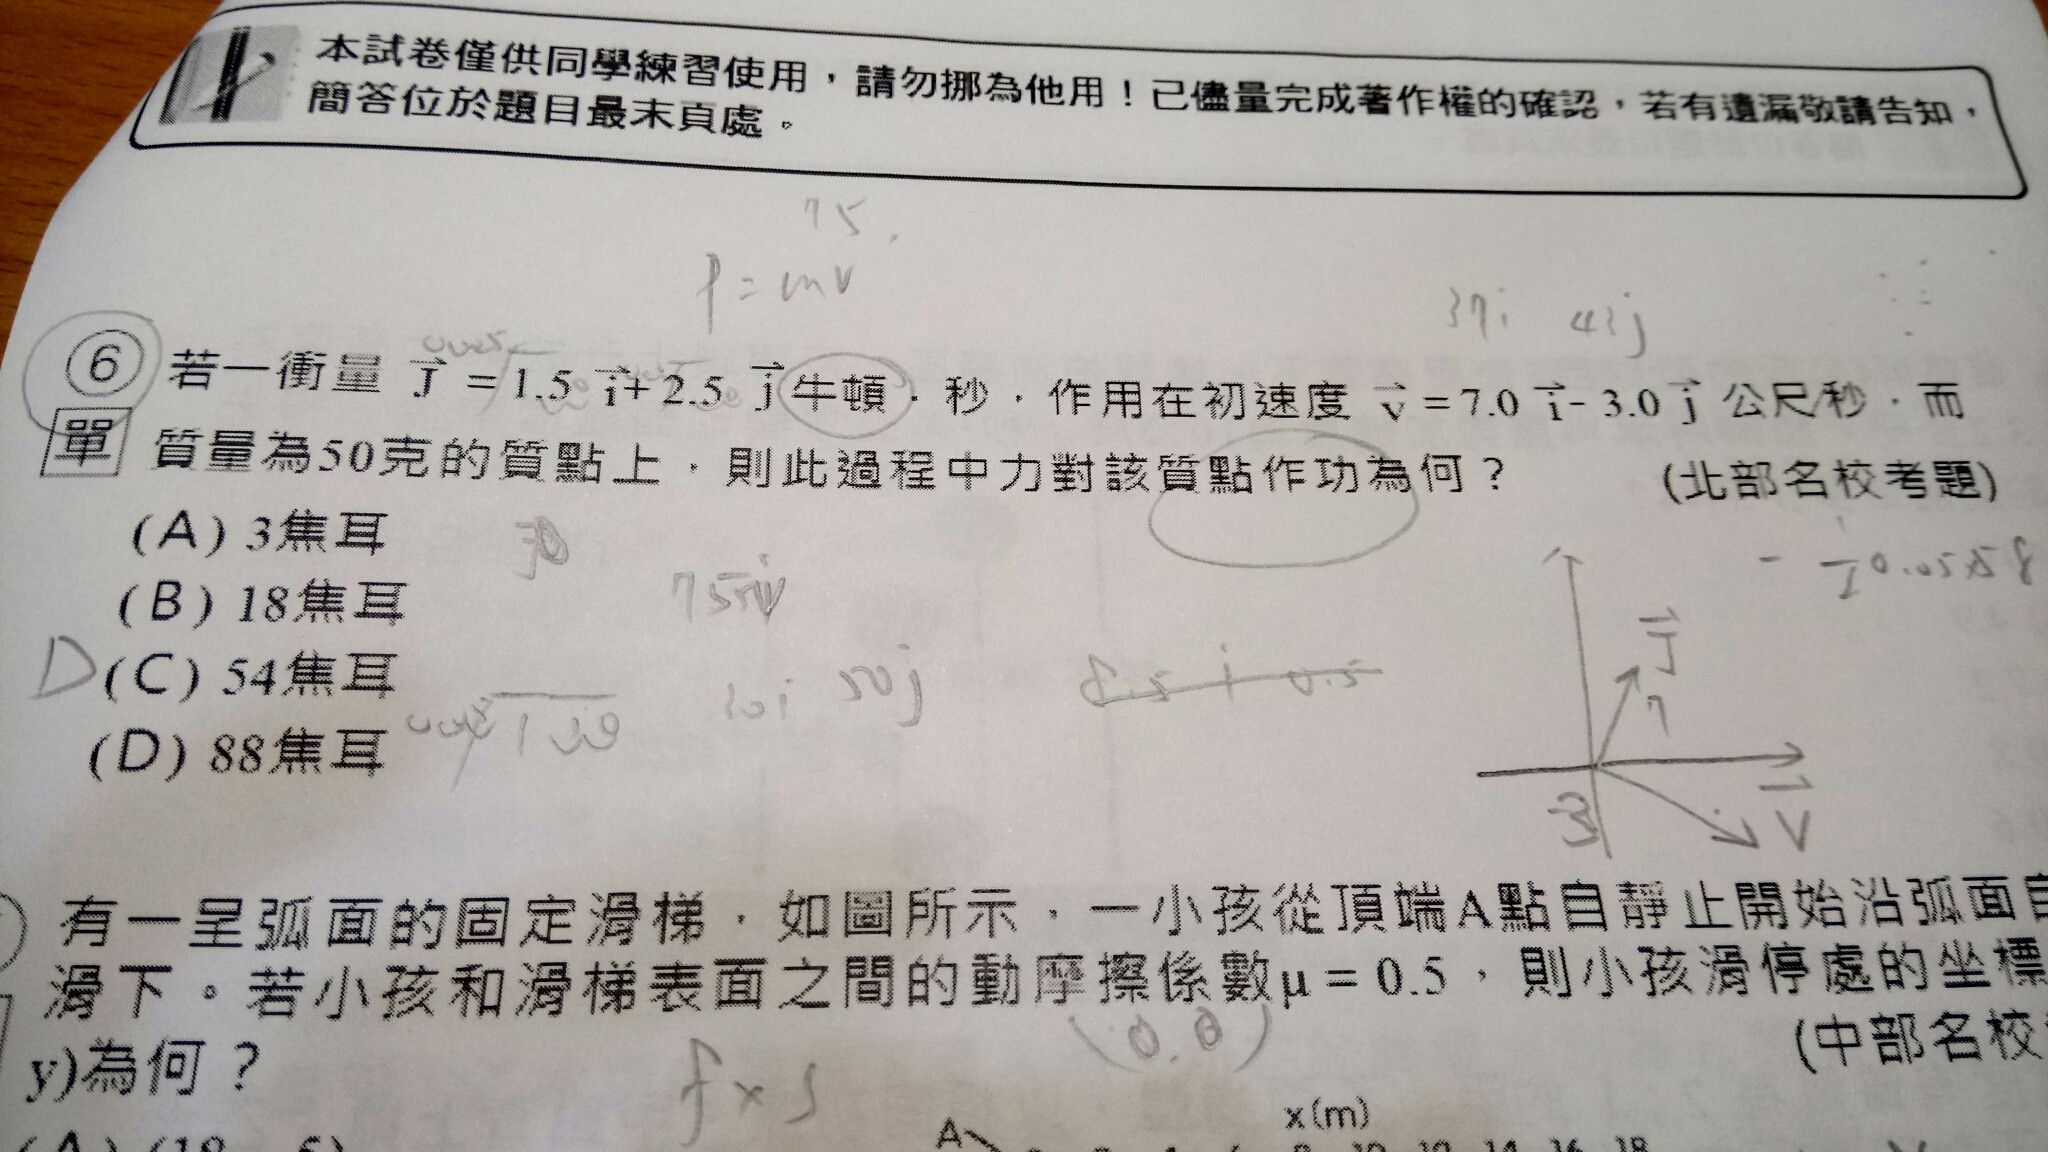 本試卷僅供同學練習使用，請勿挪為他用！已儘量完成著作權的確認，若有遺漏敬請告知，
簡答位於題目最末頁處。
75.
P=mv
37i 47j
⑥ 若一衝量 J⃗ = 1.5 i⃗ + 2.5 j⃗ 牛頓．秒，作用在初速度 v⃗ = 7.0 i⃗ - 3.0 j⃗ 公尺/秒，而
單 質量為50克的質點上，則此過程中力對該質點作功為何？ (北部名校考題)
(A) 3焦耳
(B) 18焦耳
D (C) 54焦耳
(D) 88焦耳
30i 50j
J⃗
7
3
V⃗
有一呈弧面的固定滑梯，如圖所示，一小孩從頂端A點自靜止開始沿弧面自
滑下。若小孩和滑梯表面之間的動摩擦係數μ = 0.5，則小孩滑停處的坐標
y)為何？ (中部名校
(0.0)
f x s
x(m)
A